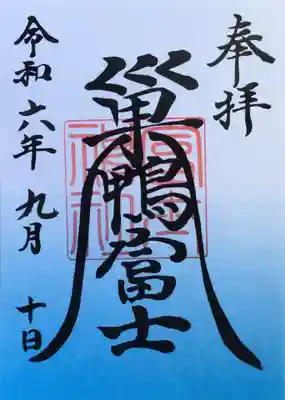 奉拝
巣鴨富士
令和六年九月十日